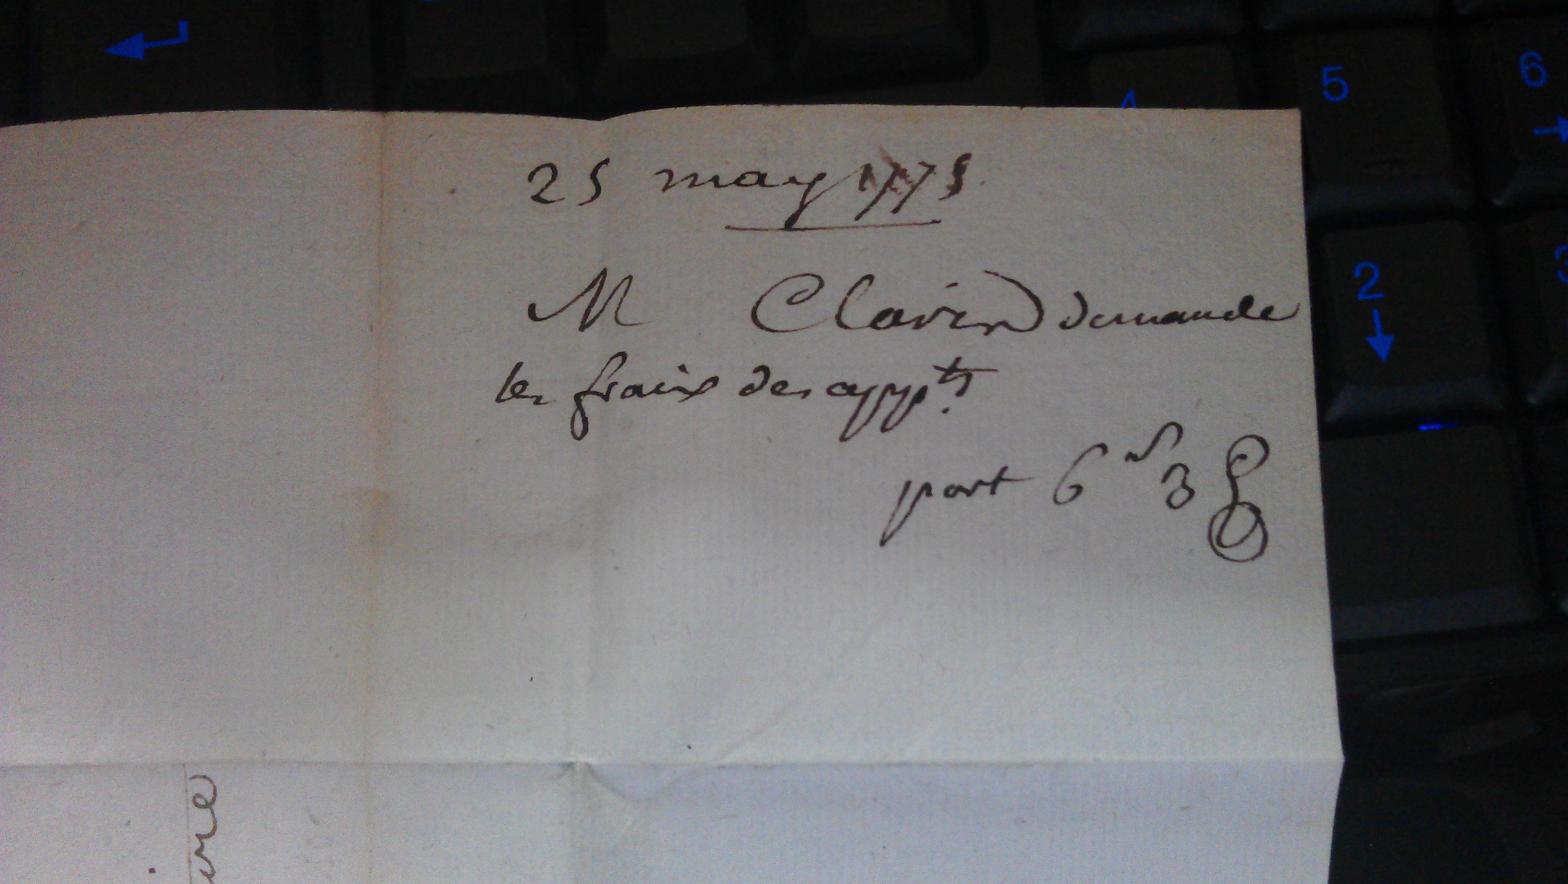 25 may 1775
M Clavier demande
les fraix des appts.
port 6 s 3
ire
5
6
4
2